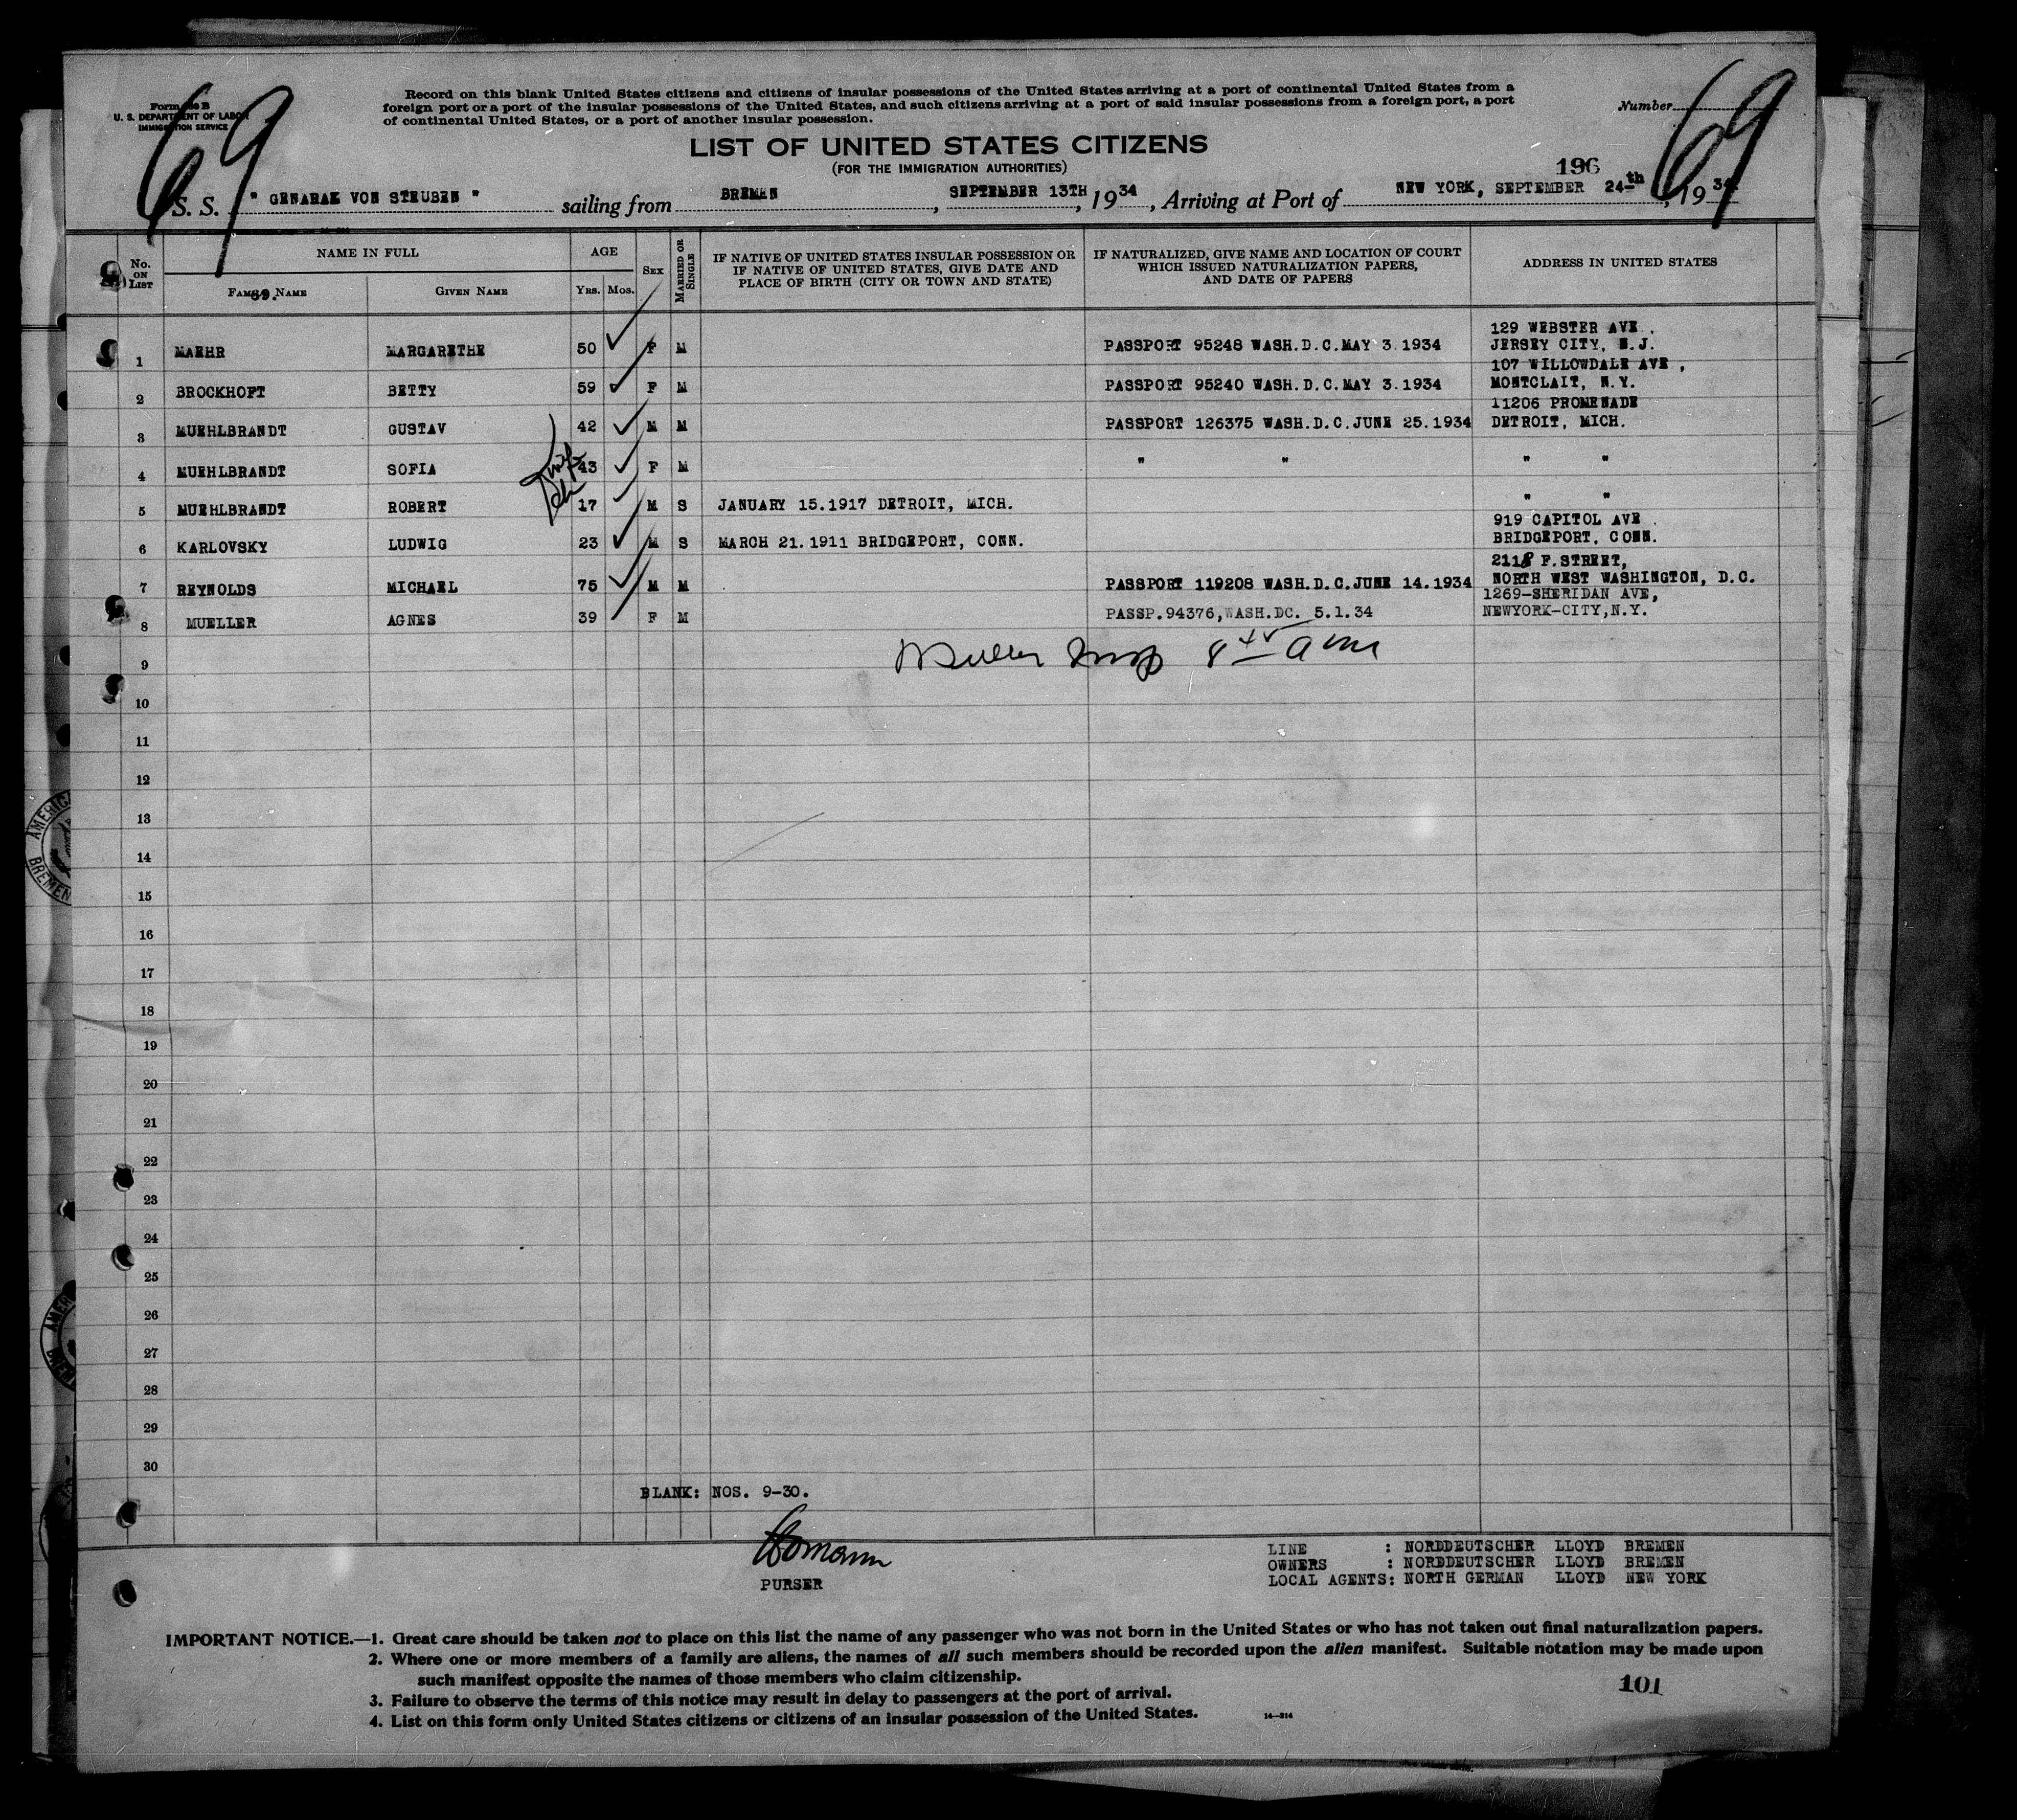 69 69
Form 630 B
U. S. DEPARTMENT OF LABOR
IMMIGRATION SERVICE
Record on this blank United States citizens and citizens of insular possessions of the United States arriving at a port of continental United States from a
foreign port or a port of the insular possessions of the United States, and such citizens arriving at a port of said insular possessions from a foreign port, a port
of continental United States, or a port of another insular possession.
Number
LIST OF UNITED STATES CITIZENS
(FOR THE IMMIGRATION AUTHORITIES)
196
S. S. " GENARAL VON STEUBEN " sailing from BREMEN, SEPTEMBER 13TH, 1934, Arriving at Port of NEW YORK, SEPTEMBER 24th, 1934
No. ON LIST NAME IN FULL AGE SEX MARRIED OR SINGLE IF NATIVE OF UNITED STATES INSULAR POSSESSION OR IF NATIVE OF UNITED STATES, GIVE DATE AND PLACE OF BIRTH (CITY OR TOWN AND STATE) IF NATURALIZED, GIVE NAME AND LOCATION OF COURT WHICH ISSUED NATURALIZATION PAPERS, AND DATE OF PAPERS ADDRESS IN UNITED STATES
FAMILY NAME GIVEN NAME YRS. MOS.
69.
1 MAEHR MARGARETHE 50 F M PASSPORT 95248 WASH.D.C.MAY 3.1934 129 WEBSTER AVE . JERSEY CITY, N.J.
2 BROCKHOFT BETTY 59 F M PASSPORT 95240 WASH.D.C.MAY 3.1934 107 WILLOWDALE AVE , MONTCLAIT, N.Y.
3 MUEHLBRANDT GUSTAV 42 M M PASSPORT 126375 WASH.D.C.JUNE 25.1934 11206 PROMENADE DETROIT, MICH.
4 MUEHLBRANDT SOFIA wife 43 F M " " " "
5 MUEHLBRANDT ROBERT 17 M S JANUARY 15.1917 DETROIT, MICH. " "
6 KARLOVSKY LUDWIG 23 M S MARCH 21.1911 BRIDGEPORT, CONN. 919 CAPITOL AVE . BRIDGEPORT, CONN.
7 REYNOLDS MICHAEL 75 M M PASSPORT 119208 WASH.D.C.JUNE 14.1934 2118 F.STREET, NORTH WEST WASHINGTON, D.C.
8 MUELLER AGNES 39 F M PASSP.94376,WASH.DC. 5.1.34 1269-SHERIDAN AVE, NEWYORK-CITY,N.Y.
Insp 8
9
10
11
12
13
14
15
16
17
18
19
20
21
22
23
24
25
26
27
28
29
30
BLANK: NOS. 9-30.
PURSER
LINE : NORDDEUTSCHER LLOYD BREMEN
OWNERS : NORDDEUTSCHER LLOYD BREMEN
LOCAL AGENTS: NORTH GERMAN LLOYD NEW YORK
IMPORTANT NOTICE.—1. Great care should be taken not to place on this list the name of any passenger who was not born in the United States or who has not taken out final naturalization papers.
2. Where one or more members of a family are aliens, the names of all such members should be recorded upon the alien manifest. Suitable notation may be made upon
such manifest opposite the names of those members who claim citizenship.
3. Failure to observe the terms of this notice may result in delay to passengers at the port of arrival.
4. List on this form only United States citizens or citizens of an insular possession of the United States.
14—314
101